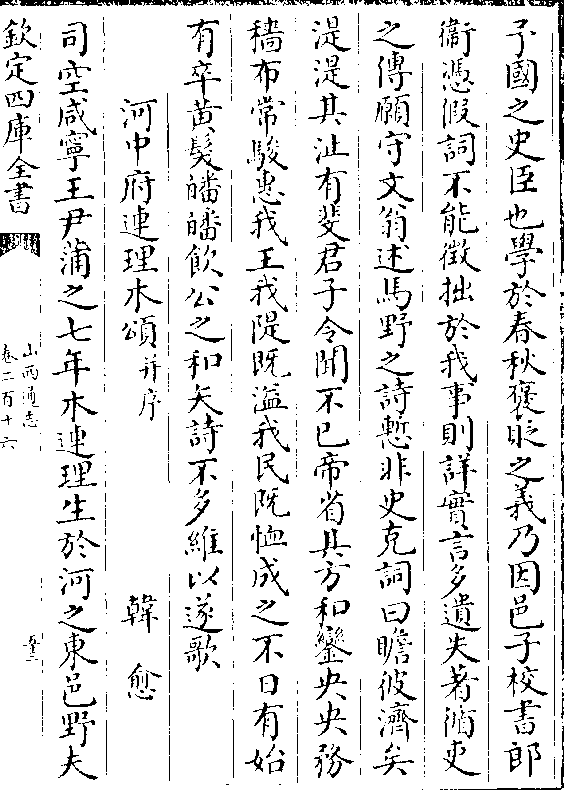 予國之史臣也學於春秋褒貶之義乃因邑子校書郎
衞憑假詞不能徵拙於我事則詳實言多遺失著循吏
之傳願守文翁述馬野之詩慙非史克詞曰瞻彼濟矣
湜湜其沚有斐君子令聞不已帝省其方和鑾央央務
穡布常駿惠我王我隄既溢我民既恤成之不日有始
有卒黄髮皤皤飲公之和矢詩不多維以遂歌
河中府連理木頌并序 韓愈
司空咸寧王尹蒲之七年木連理生於河之東邑野夫
欽定四庫全書
山西通志
卷二百十六